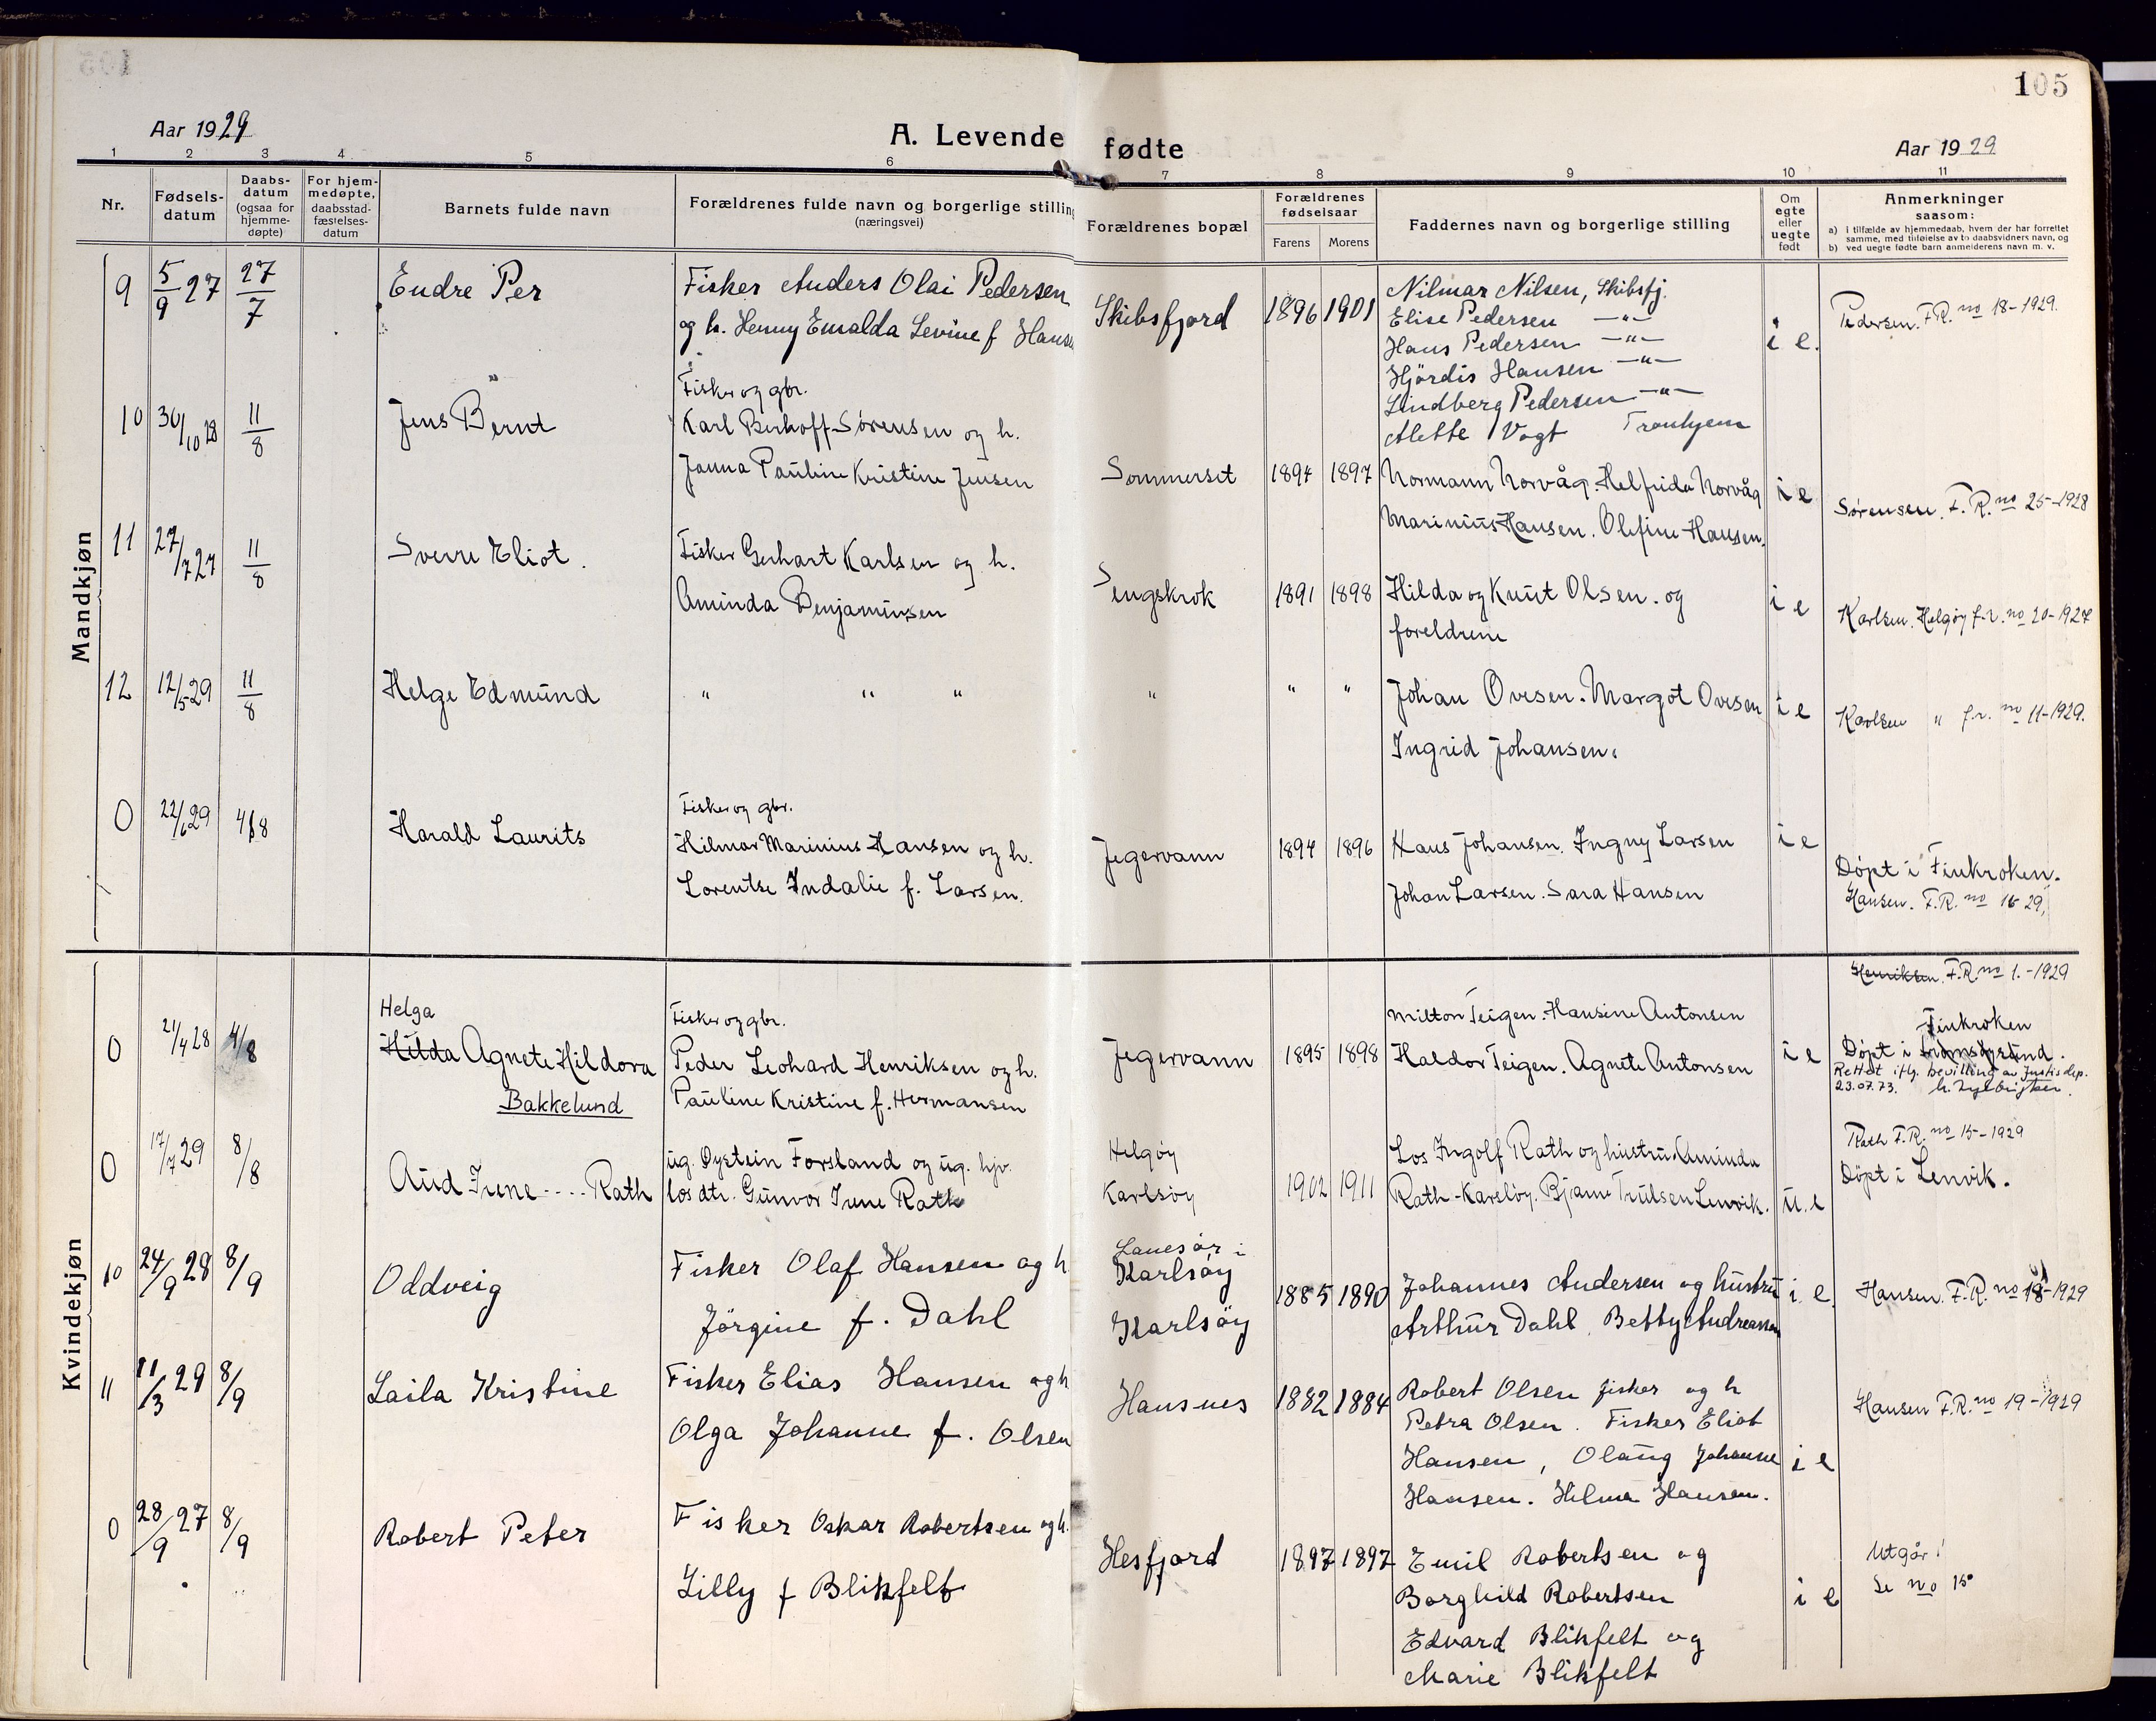 105
Aar 1929
A. Levende fødte
Aar 1929
1 2 3 4 5 6 7 8 9 10 11
Nr.
Fødsels-
datum
Daabs-
datum
(ogsaa for
hjemme-
døpte)
For hjem-
medøpte,
daabsstad-
fæstelses-
datum
Barnets fulde navn
Forældrenes fulde navn og borgerlige stilling
(næringsvei)
Forældrenes bopæl
Forældrenes
fødselsaar
Farens Morens
Faddernes navn og borgerlige stilling
Om
egte
eller
uegte
født
Anmerkninger
saasom:
a) i tilfælde av hjemmedaab, hvem der har forrettet
samme, med tilføielse av to daabsvidners navn, og
b) ved uegte fødte barn anmelderens navn m. v.
Mandkjøn
9 5/9 27 27/7 Endre Per
Fisker Anders Olai Pedersen
og h. Henny Emalda Levine f Hansen
Skibsfjord 1896 1901
Nilmar Nilsen, Skibsfj.
Elise Pedersen —"—
Hans Pedersen —"—
Hjördis Hansen —"—
Lindberg Pedersen —"—
Alette Vogt
i e.
Pedersen. F.R. no 18-1929.
10 30/10 28 11/8 Jens Bernt
Fisker og gbr.
Karl Berhoff Sørensen og h.
Janna Pauline Kristine Jensen
Sommerset 1894 1897
Normann Norvåg. Helfrida Norvåg
Marinius Hansen. Olefine Hansen.
i e
Sørensen. F.R. no 25-1928
11 27/7 27 11/8 Sverre Eliot.
Fisker Gerhart Karlsen og h.
Aminda Benjaminsen
Sengskrok 1891 1898
Hilda og Knut Olsen. og
foreldrene
i e
Karlsen. Helgøy f.r. no 20-1927
12 12/5 29 11/8 Helge Edmund
" " "
" " "
Johan Ovesen. Margot Ovesen
Ingrid Johansen.
i e
Karlsen " f.r. no 11-1929.
0 22/6 29 4/8 Harald Laurits
Fisker og gbr.
Hilmar Marinius Hansen og h.
Lorentse Indalie f. Larsen.
Jegervann 1894 1896
Hans Johansen. Ingny Larsen
Johan Larsen. Sara Hansen
i e
Döpt i Finkroken.
Hansen. F.R. no 16 29,
Kvindekjøn
Henriksen. F.R. no 1.-1929
0 21/4 28 4/8
Helga
Hilda Agnete Hildora
Bakkelund
Fisker og gbr.
Peder Leohard Henriksen og h.
Pauline Kristine f. Hermansen
Jegervann 1895 1898
Milton Teigen. Hansine Antonsen
Haldor Teigen. Agnete Antonsen
i e
Finkroken
Döpt i Tromsøysund.
Rettet iflg. bevilling av Justisdep.
23.07.73.
0 17/7 29 8/8 Aud Irene .... Rath
ug. Øystein Forsland og ug. hjv.
los dtr. Gunvor Irene Rath
Helgøy
Karlsøy
1902 1911
Los Ingolf Rath og hustru Aminda
Rath-Karlsöy. Bjarne Trulsen Lenvik.
u. e
Rath F.R. no 15-1929
Döpt i Lenvik.
10 24/9 28 8/9 Oddveig
Fisker Olaf Hansen og h
Jörgine f. Dahl
Lanesör i
Karlsöy
Karlsöy
1885 1890
Johannes Andersen og hustru
Arthur Dahl, Betty Andreassen
i. e.
Hansen. F.R. no 18-1929
11 11/3 29 8/9 Laila Kristine
Fisker Elias Hansen og h
Olga Johanne f. Olsen
Hansnes 1882 1884
Robert Olsen fisker og h
Petra Olsen. Fisker Eliot
Hansen, Olaug Johanne
Hansen. Hilma Hansen.
i e
Hansen F.R. no 19-1929
0 28/9 27 8/9 Robert Peter
Fisker Oskar Robertsen og h.
Lilly f Blikfelt
Hesfjord 1897 1897
Emil Robertsen og
Borghild Robertsen
Edvard Blikfelt og
Marie Blikfelt
i e
Utgår!
Se no 15